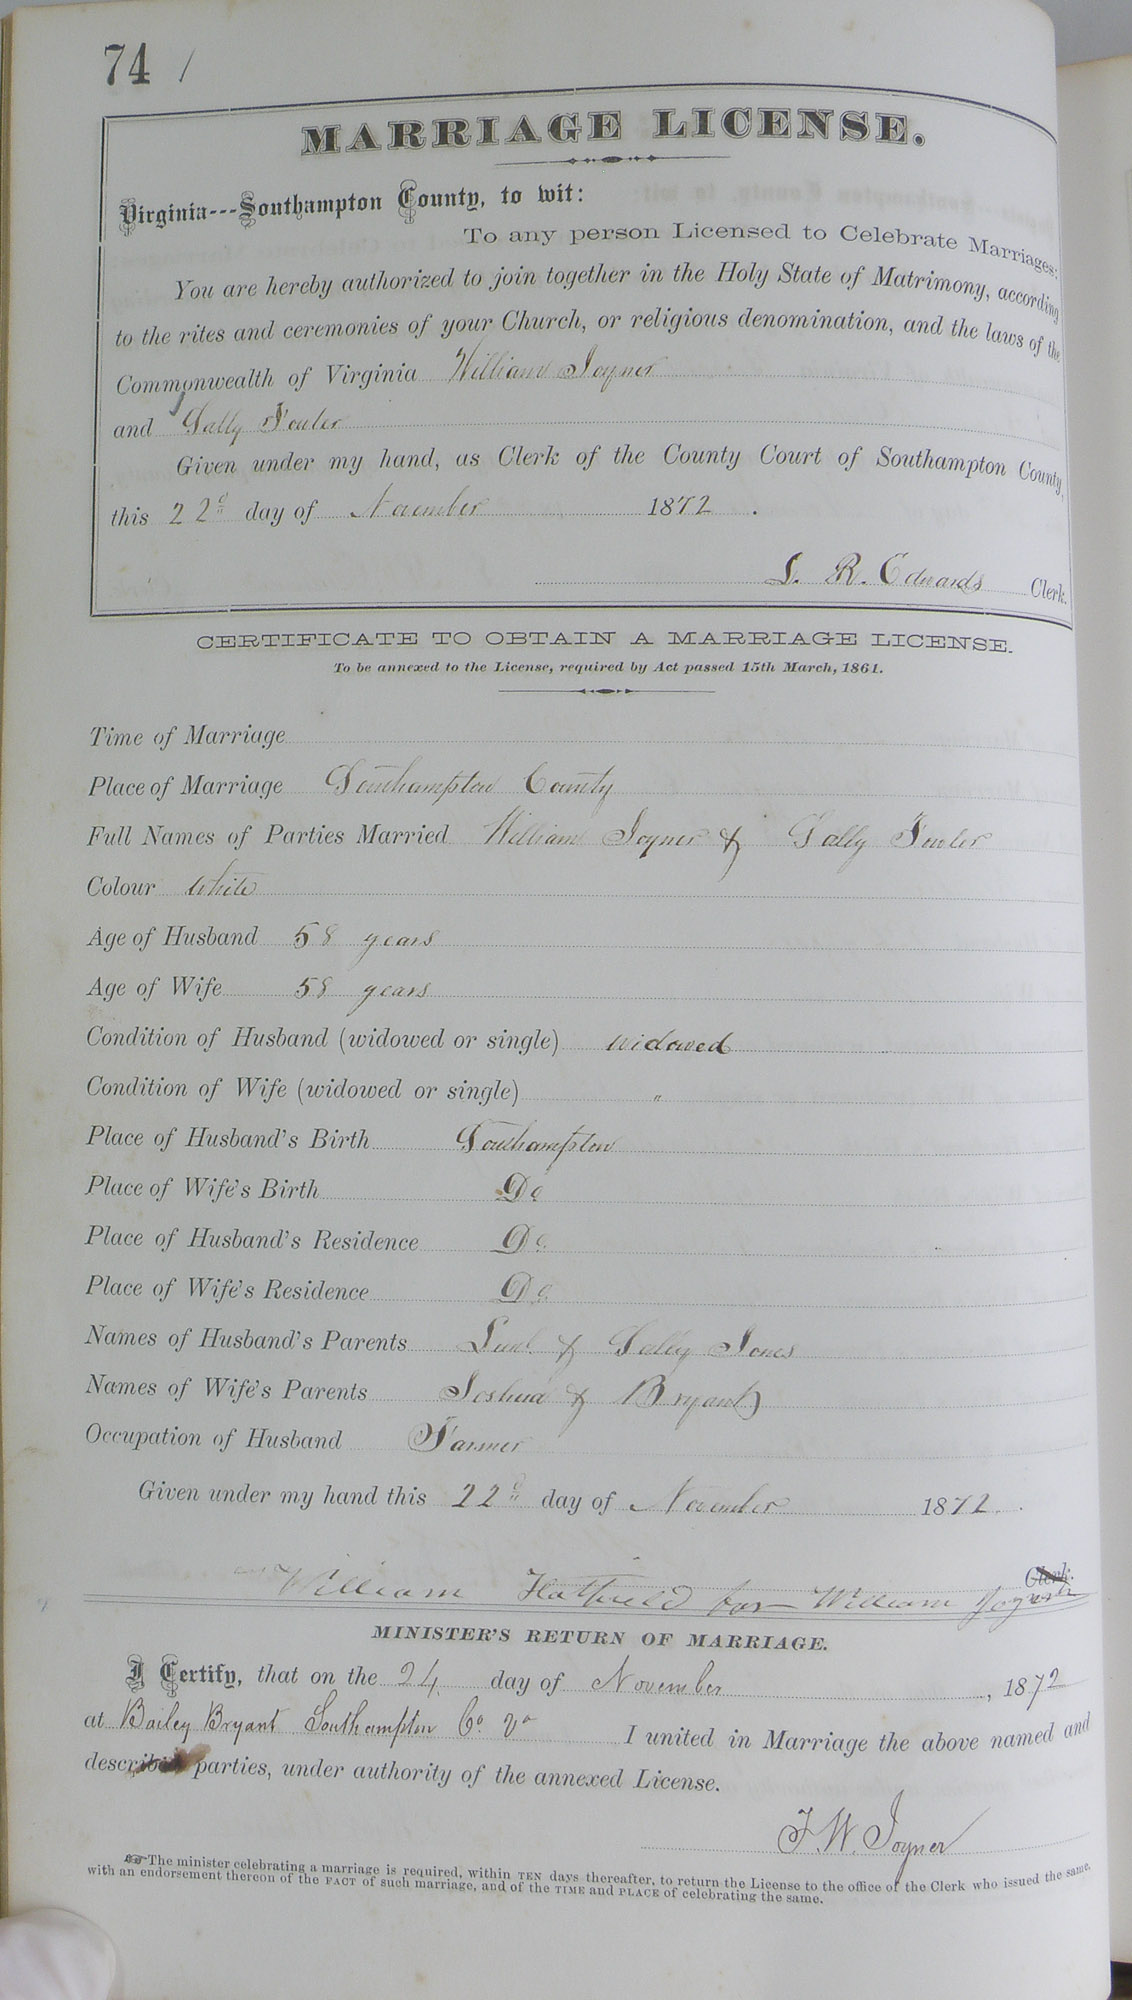 74 /
MARRIAGE LICENSE.
Virginia---Southampton County, to wit:
To any person Licensed to Celebrate Marriages:
You are hereby authorized to join together in the Holy State of Matrimony, according
to the rites and ceremonies of your Church, or religious denomination, and the laws of the
Commonwealth of Virginia William Joyner
and Sally Fowler
Given under my hand, as Clerk of the County Court of Southampton County,
this 22d day of November 1872.
L. R. Edwards Clerk.
CERTIFICATE TO OBTAIN A MARRIAGE LICENSE.
To be annexed to the License, required by Act passed 15th March, 1861.
Time of Marriage
Place of Marriage Southampton County
Full Names of Parties Married William Joyner & Sally Fowler
Colour White
Age of Husband 58 years
Age of Wife 58 years
Condition of Husband (widowed or single) widowed
Condition of Wife (widowed or single) "
Place of Husband's Birth Southampton
Place of Wife's Birth Do
Place of Husband's Residence Do.
Place of Wife's Residence Do.
Names of Husband's Parents & Sally Jones
Names of Wife's Parents Joshua & Bryant
Occupation of Husband Farmer
Given under my hand this 22d day of November 1872.
Clerk.
William Hatfield for William Joyner
MINISTER'S RETURN OF MARRIAGE.
I Certify, that on the 24 day of November, 1872
at Bailey Bryant Southampton Co. Va I united in Marriage the above named and
described parties, under authority of the annexed License.
J. W. Joyner
☞The minister celebrating a marriage is required, within TEN days thereafter, to return the License to the office of the Clerk who issued the same,
with an endorsement thereon of the FACT of such marriage, and of the TIME and PLACE of celebrating the same.